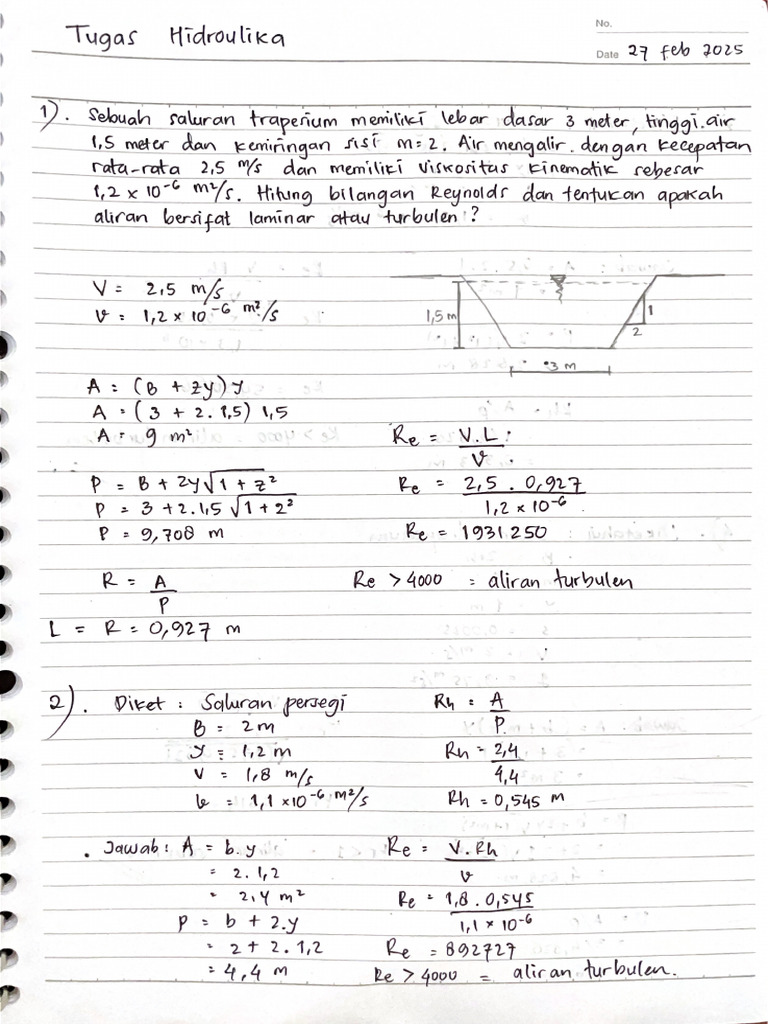 Tugas Hidroulika
No.
Date 27 Feb 2025
1). Sebuah saluran trapesium memiliki lebar dasar 3 meter, tinggi air
1,5 meter dan kemiringan sisi m=2. Air mengalir dengan kecepatan
rata-rata 2,5 m/s dan memiliki viskositas kinematik sebesar
1,2 x 10⁻⁶ m²/s. Hitung bilangan Reynolds dan tentukan apakah
aliran bersifat laminar atau turbulen?
V = 2,5 m/s
v = 1,2 x 10⁻⁶ m²/s
1,5 m
1
2
3 m
A = (B + zy) y
A = (3 + 2. 1,5) 1,5
A = 9 m²
P = B + 2y√1 + z²
P = 3 + 2.1,5 √1 + 2²
P = 9,708 m
R = A/P
L = R = 0,927 m
Re = V.L/v
Re = 2,5 . 0,927/1,2 x 10⁻⁶
Re = 1931.250
Re > 4000 = aliran turbulen
2). Diket : Saluran persegi
B = 2m
y = 1,2 m
v = 1,8 m/s
v = 1,1 x10⁻⁶ m²/s
Rh = A/P
Rh = 2,4/4,4
Rh = 0,545 m
Jawab : A = b.y
= 2. 1,2
= 2,4 m²
P = b + 2.y
= 2 + 2. 1,2
= 4,4 m
Re = V.Rh/v
Re = 1,8 . 0,545/1,1 x 10⁻⁶
Re = 892727
Re > 4000 = aliran turbulen.